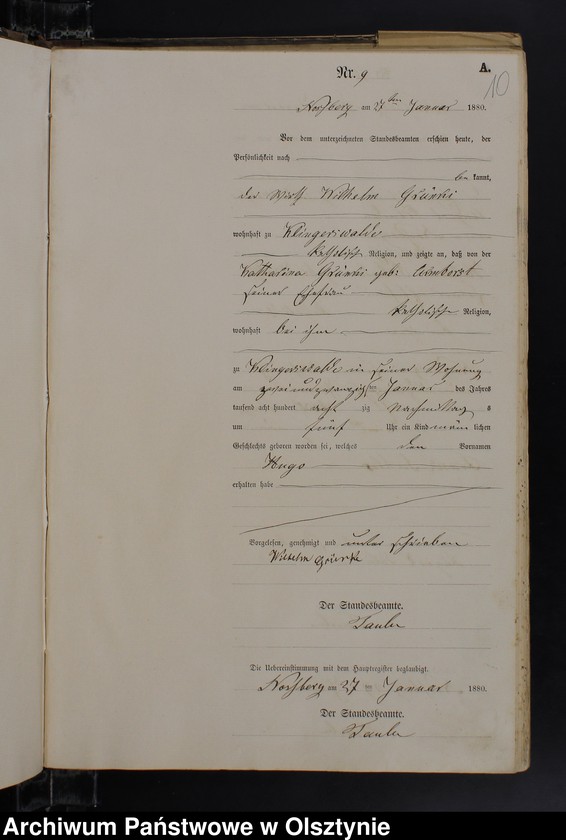 A.
10
Nr. 9
Nossberg am 27ten Januar 1880.
Vor dem unterzeichneten Standesbeamten erschien heute, der
Persönlichkeit nach
be kannt,
der Wirth Wilhelm
wohnhaft zu Klingerswalde
katholischer Religion, und zeigte an, daß von der
Katharina geb:
seiner Ehefrau
katholischer Religion,
wohnhaft bei ihm
zu Klingerswalde in seiner Wohnung
am zweiundzwanzigsten Januar des Jahres
tausend acht hundert acht zig Nachmittag s
um fünf Uhr ein Kind männ lichen
Geschlechts geboren worden sei, welches den Vornamen
Hugo
erhalten habe
Vorgelesen, genehmigt und unterschrieben
Wilhelm
Der Standesbeamte.
Die Uebereinstimmung mit dem Hauptregister beglaubigt.
Nossberg am 27 Januar 1880.
Der Standesbeamte.
Archiwum Państwowe w Olsztynie